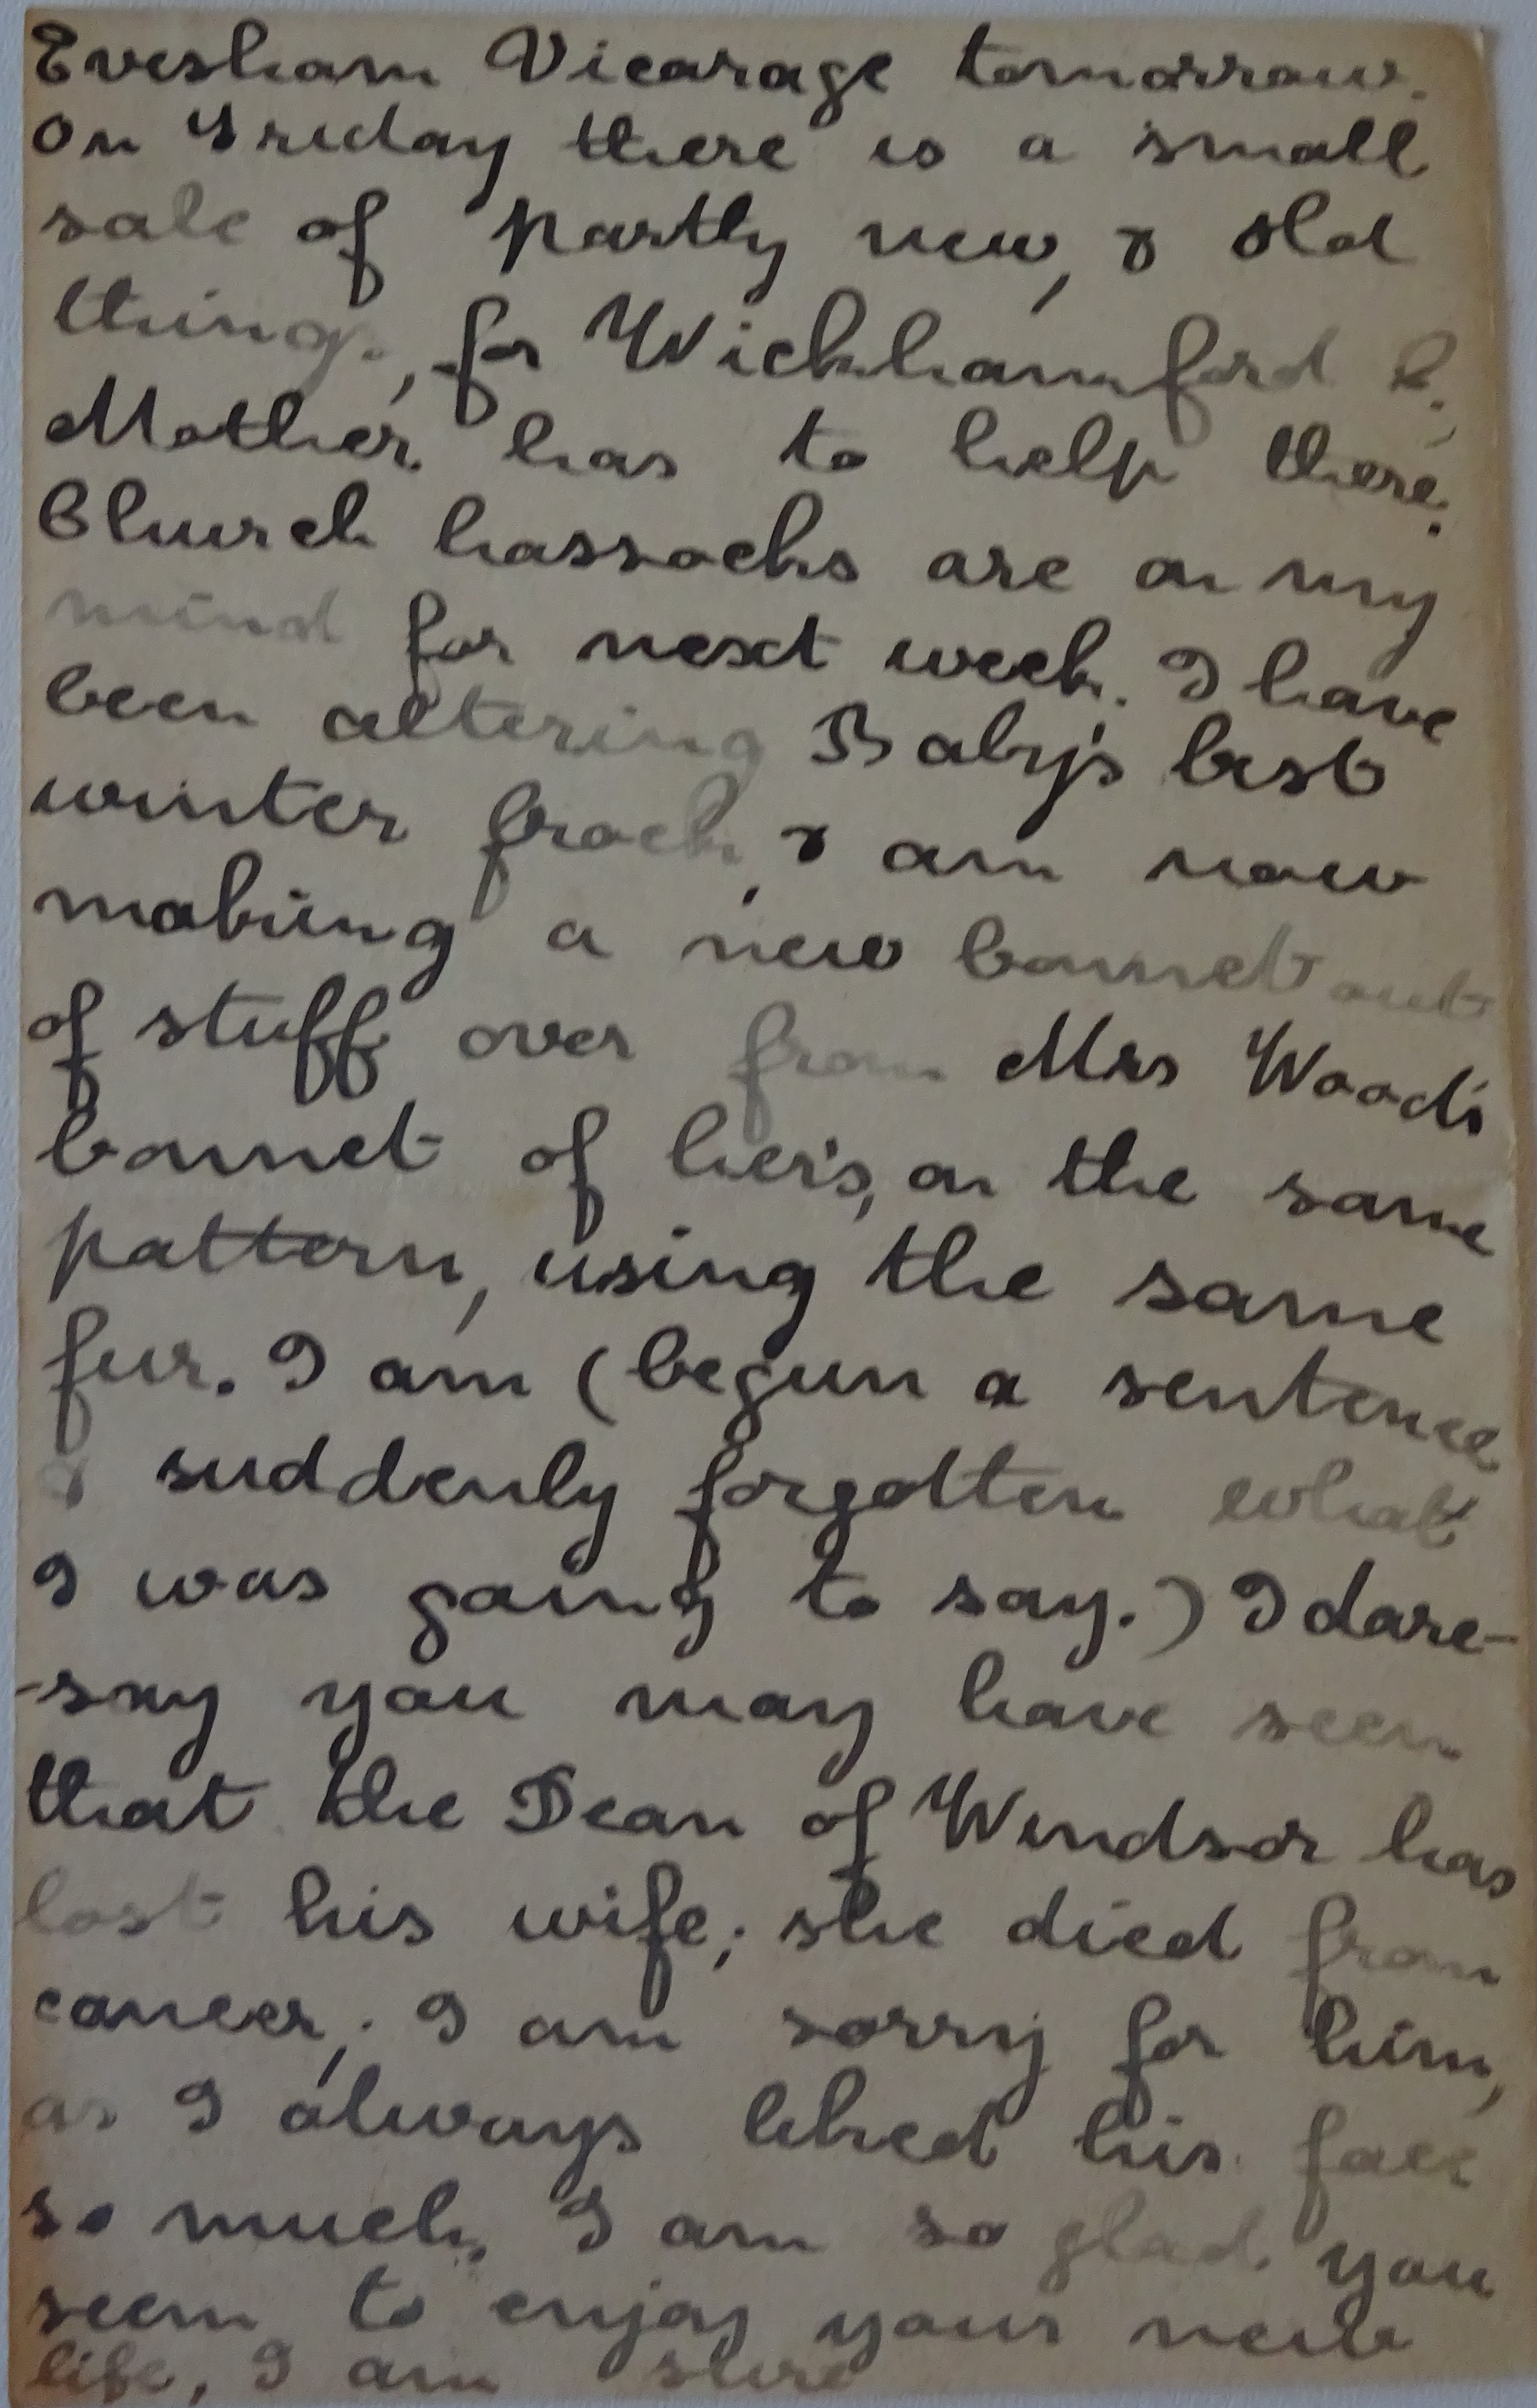 Evesham Vicarage tomorrow.
On Friday there is a small
sale of partly new, & old
things, for Wickhamford C.,
Mother has to help there.
Church hassocks are on my
mind for next week. I have
been altering Baby's best
winter frock, & am now
making a new bonnet out
of stuff over from Mrs Wood's
bonnet of her's, on the same
pattern, using the same
fur. I am (begun a sentence
& suddenly forgotten what
I was going to say.) I dare-
-say you may have seen
that the Dean of Windsor has
lost his wife; she died from
cancer; I am sorry for him,
as I always liked his face
so much. I am so glad you
seem to enjoy your new
life, I am sure